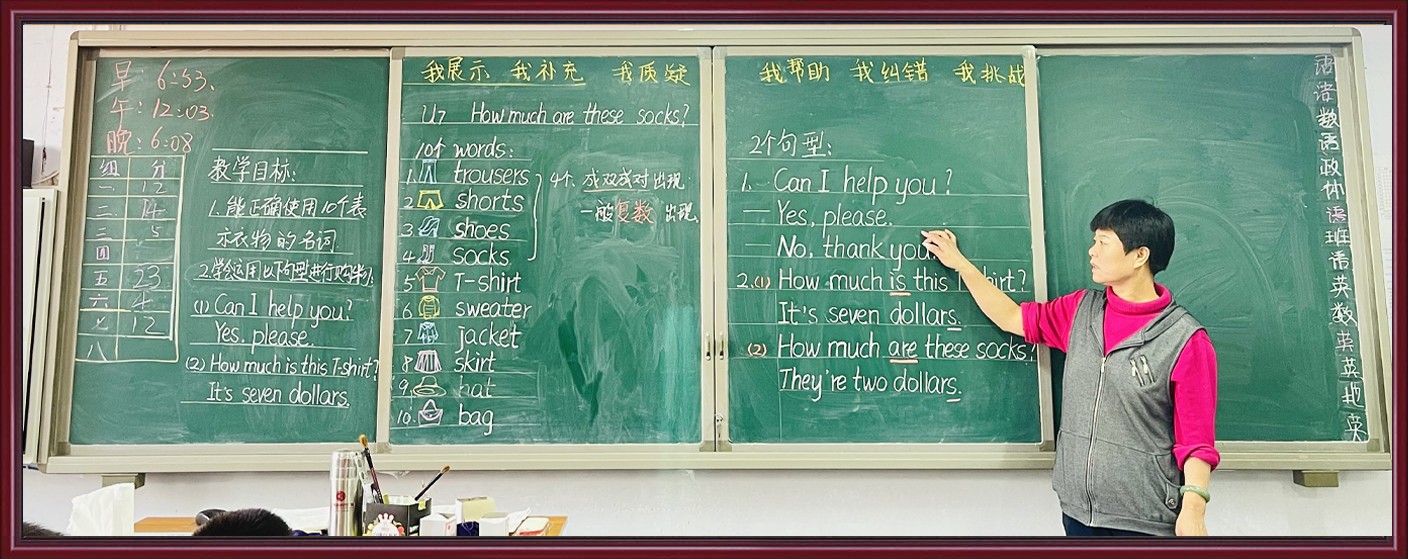 早: 6:53.
午: 12:03.
晚: 6:08
组 分
一 12
二 14
三 5
四
五 23
六 4
七 12
八
教学目标:
1. 能正确使用10个表
示衣物的名词.
2. 学会运用以下句型进行购物:
(1) Can I help you?
Yes, please.
(2) How much is this T-shirt?
It's seven dollars.
我展示 我补充 我质疑
U7 How much are these socks?
10个 words:
1. trousers
2. shorts
3. shoes
4. socks
5 T-shirt
6 sweater
7 jacket
8 skirt
9. hat
10. bag
4个、成双成对出现.
一般复数 出现.
我帮助 我纠错 我挑战
2个句型:
1. Can I help you?
— Yes, please.
— No, thank you.
2. (1) How much is this shirt?
It's seven dollars.
(2) How much are these socks?
They're two dollars.
语
语
数
语
政
体
语
班
语
英
数
英
英
地
英